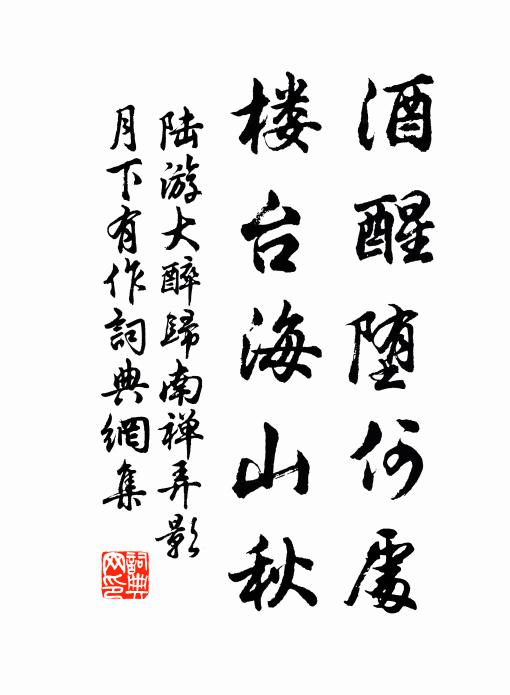 酒醒堕何處
楼台海山秋
陆游大醉歸南禅弄影
月下有作詞典網集
詞典网印